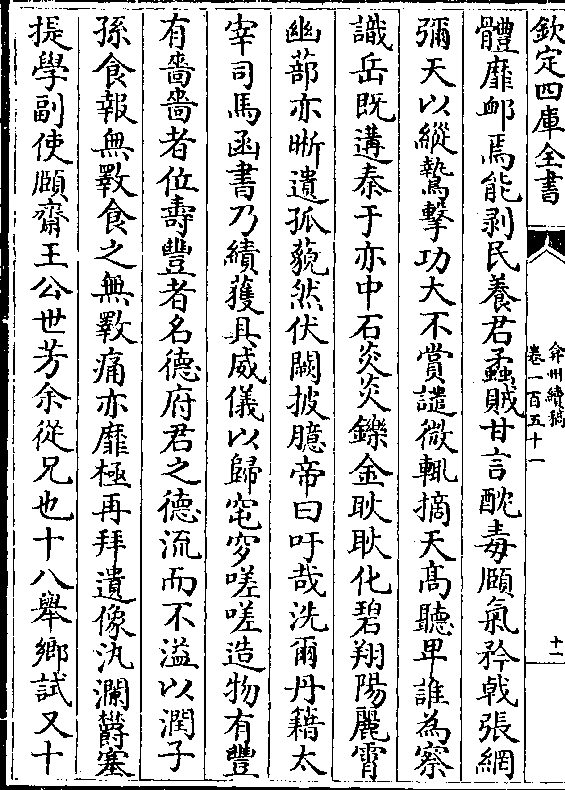 欽定四庫全書
弇州續稿
卷一百五十一
十一
體靡衈焉能剥民養君蟊賊甘言酖毒頤氣矜㦸張網
彌天以縱鷙擊功大不賞譴微輒摘天髙聽卑誰為察
識岳既遘秦于亦中石炎炎鑠金耿耿化碧翔陽麗霄
幽蔀亦晣遺孤藐然伏闕披臆帝曰吁哉洗爾丹籍太
宰司馬函書乃績蒦具威儀以歸窀穸嗟嗟造物有豐
有嗇嗇者位壽豐者名德府君之德流而不溢以潤子
孫食報無斁食之無斁痛亦靡極再拜遺像汍瀾欝塞
提學副使頤齋王公世芳余從兄也十八舉鄉試又十